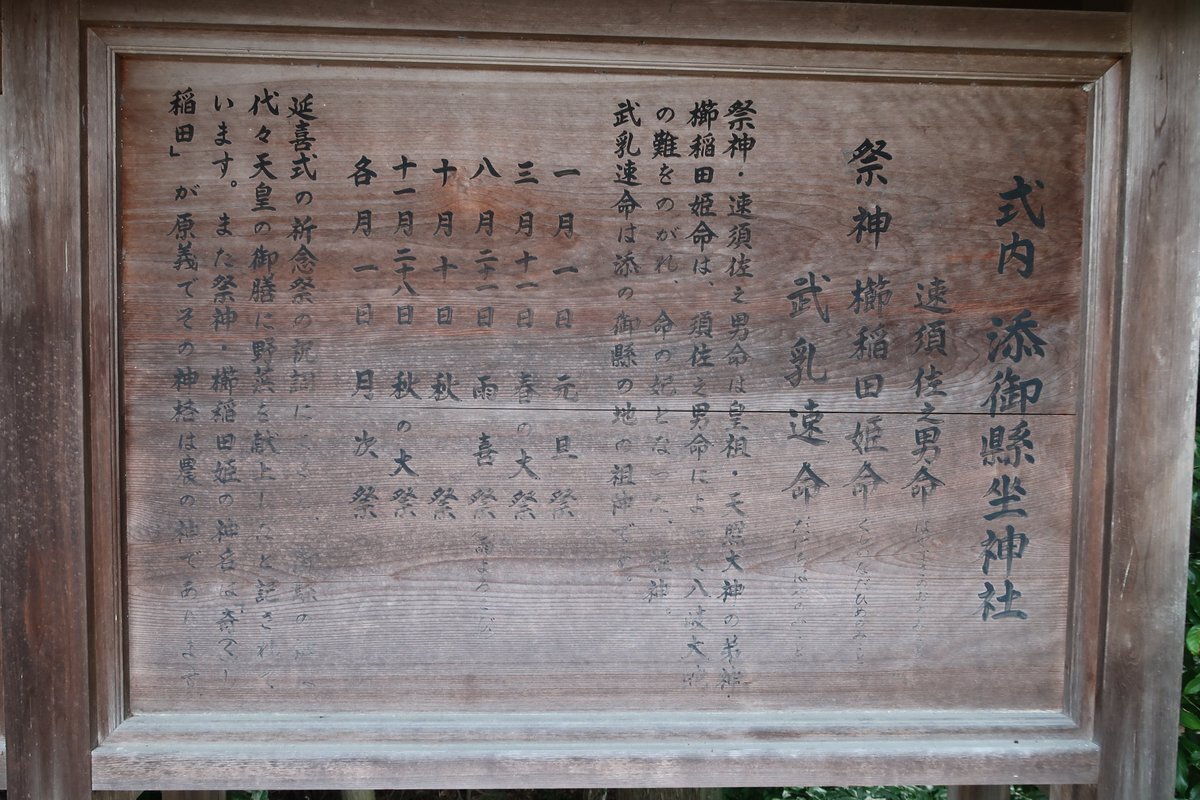 式内 添御縣坐神社
速須佐之男命 はやすさのおのみこと
祭神 櫛稲田姫命 くしいなだひめのみこと
武乳速命 たけちはやのみこと
祭神・速須佐之男命は皇祖・天照大神の弟神・
櫛稲田姫命は、須佐之男命によって八岐大蛇
の難をのがれ、命の妃となった 神
武乳速命は添の御縣の地の祖神です。
一月一日 元旦祭
三月十一日 春の大祭
八月二十一日 雨喜祭 雨よろこび
十月十日 秋祭
十一月二十八日 秋の大祭
各月一日 月次祭
延喜式の祈念祭の祝詞に 縣の
代々天皇の御膳に野菜を献上したと記されて
います。また祭神・櫛稲田姫の神名は「奇くし
稲田」が原義でその神格は農の神であります